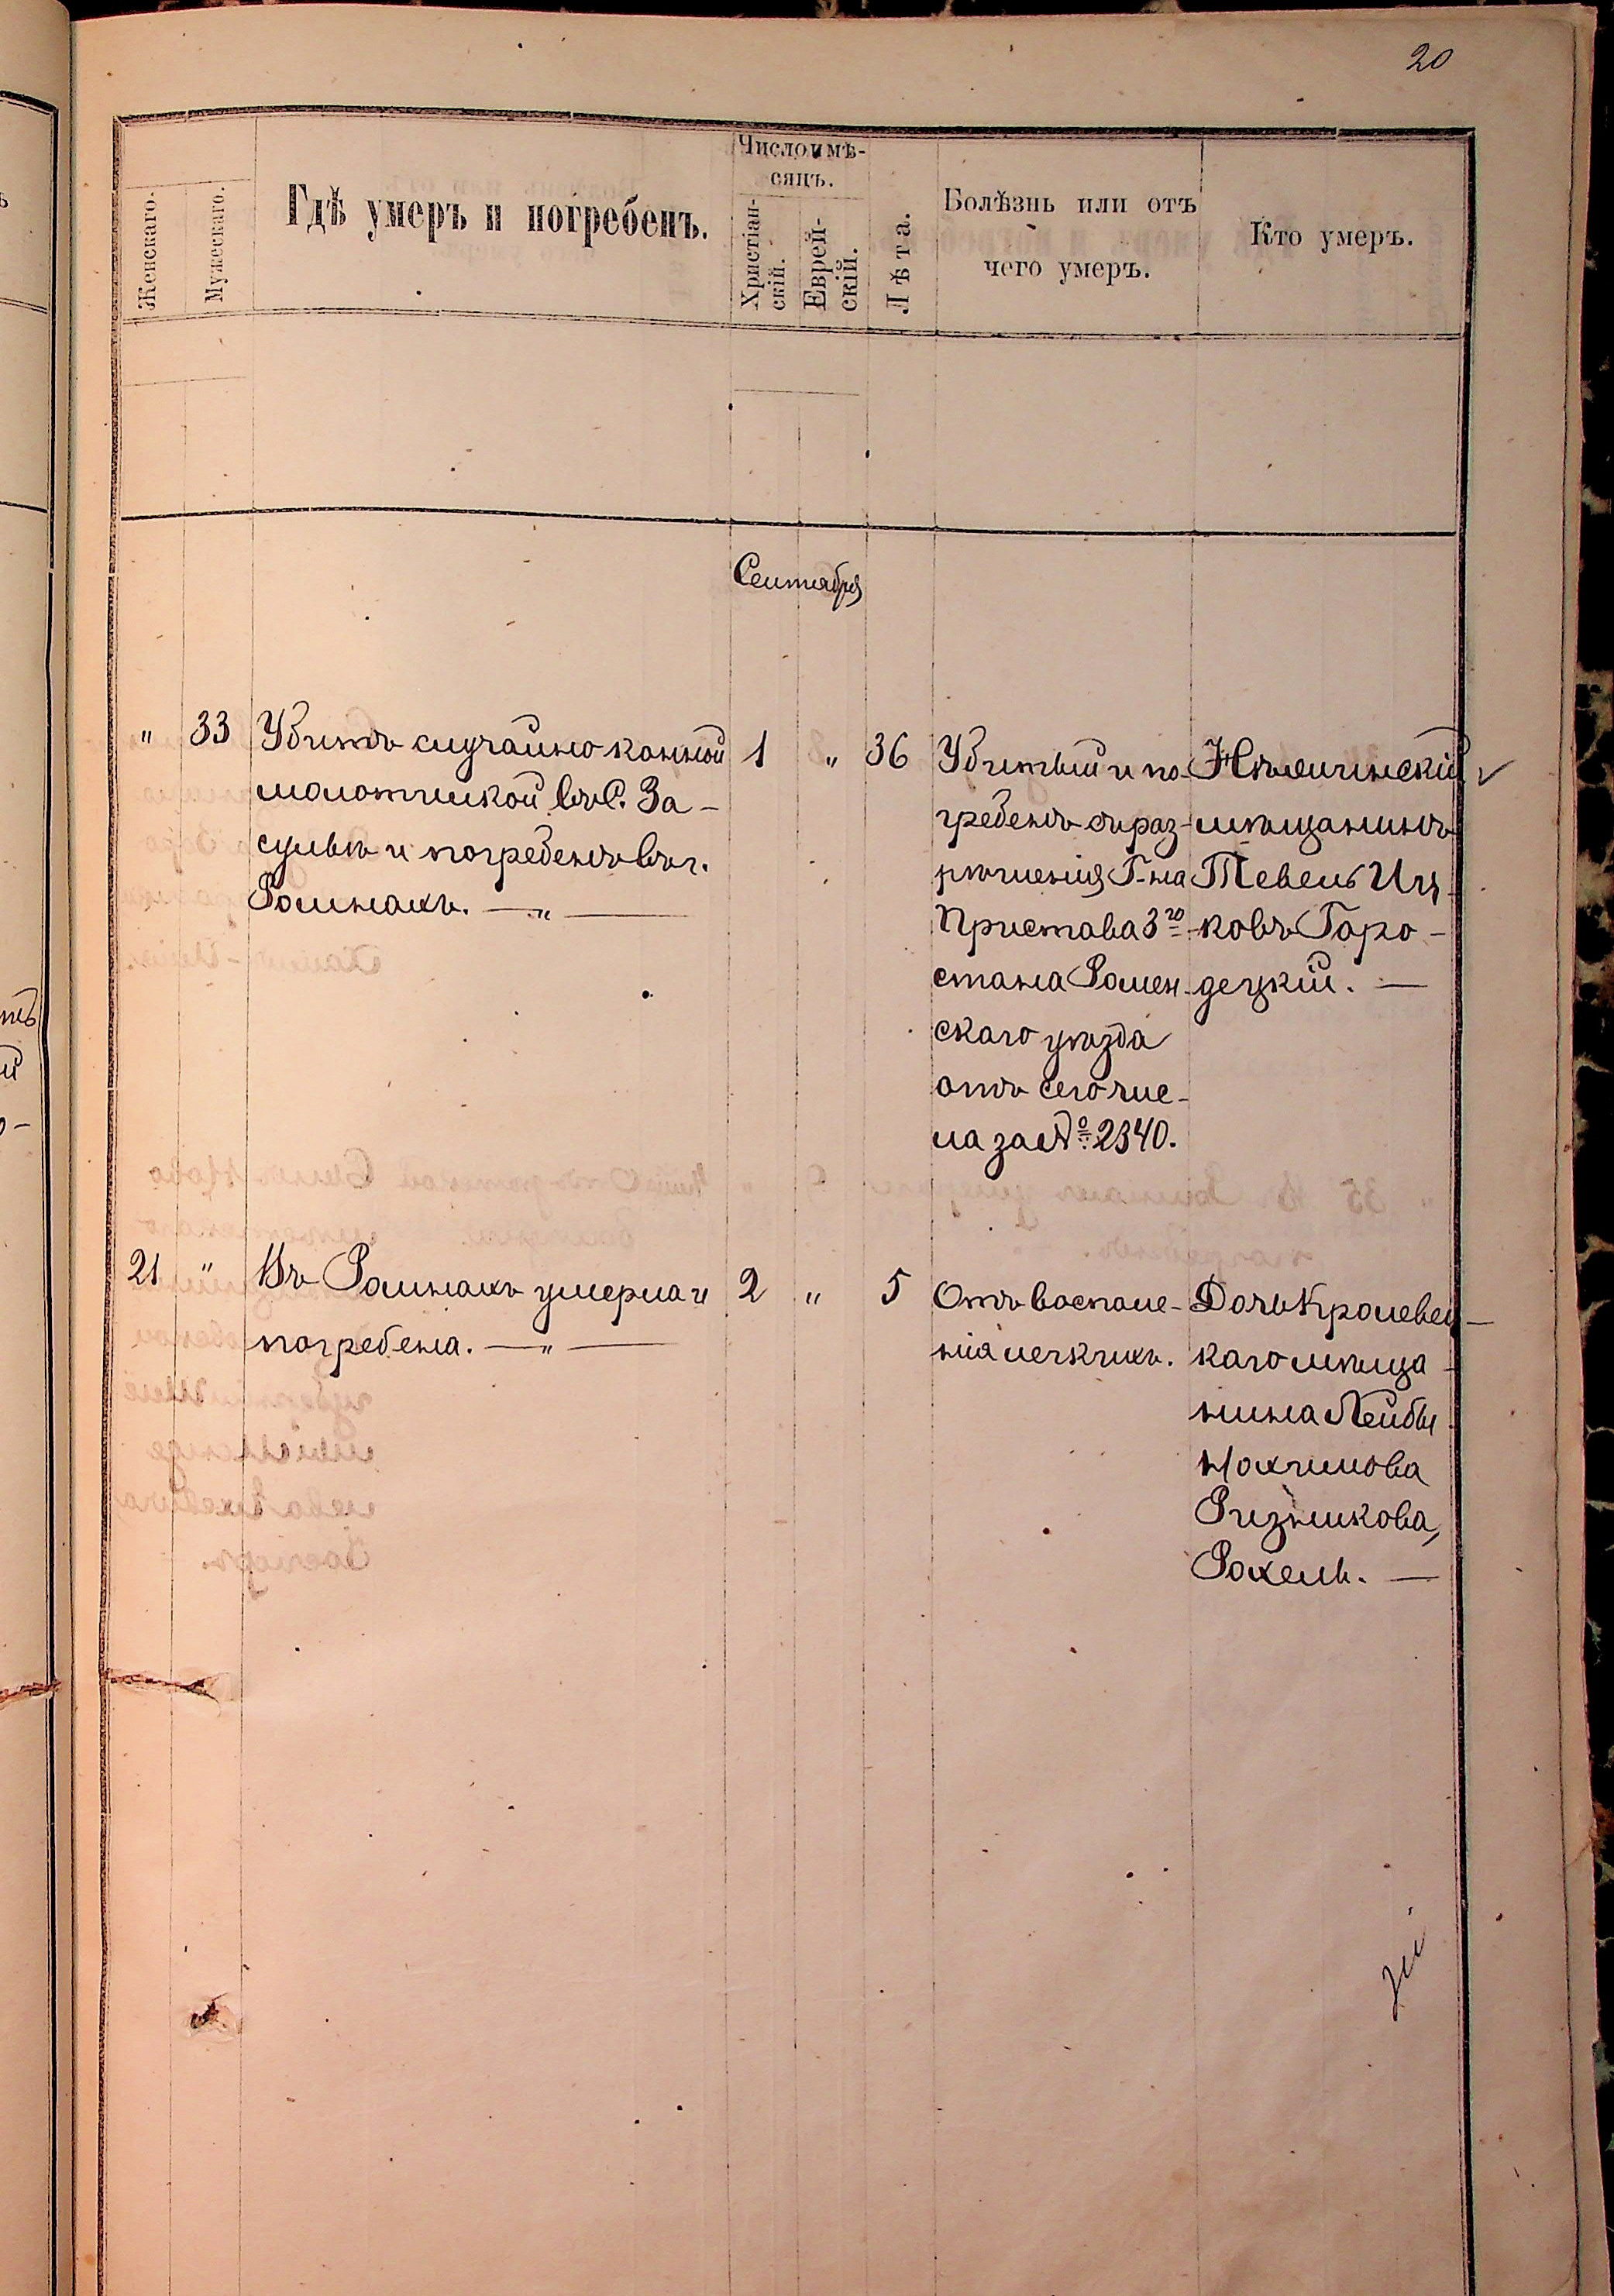 20
Женскаго.
Мужескаго.
Гдѣ умеръ и погребенъ.
Число и мѣ-
сяцъ.
Христіан-
скій.
Еврей-
скій.
Лѣта.
Болѣзнь или отъ
чего умеръ.
Кто умеръ.
Сентября
" 33
Убитъ случайно конной
молотилкой въ С. За-
сульи и погребенъ въ г.
Ромнахъ. — " —
1 " 36
Убитый и по-
гребенъ съ раз-
рѣшенія Г-на
Пристава 3го
стана Ромен-
скаго уѣзда
отъ сего чис-
ла за № 2340.
Нѣжинскій
мѣщанинъ
Тевель Иц-
ковъ Горо-
децкій. —
21 "
Въ Ромнахъ умерла и
погребена. — " —
2 " 5
Отъ воспале-
нія легкихъ.
Дочь Кролевец-
каго мѣща-
нина Лейбы
Нохимова
Ризникова,
Рохель. —